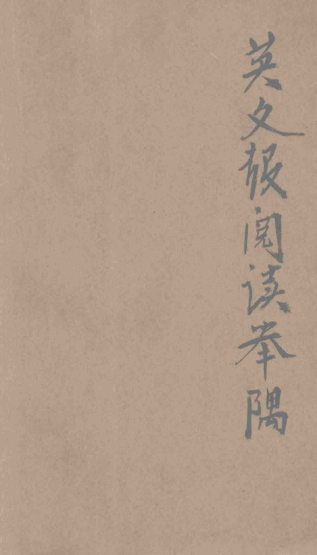 英文报阅读举隅